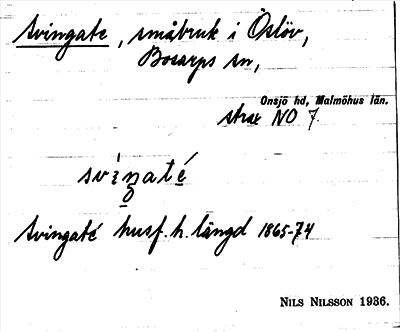 Svingate, småbruk i Öslöv,
Bosarps sn,
Onsjö hd, Malmöhus län.
strax NO 7.
Svingaté husf. h. längd 1865-74
NILS NILSSON 1936.